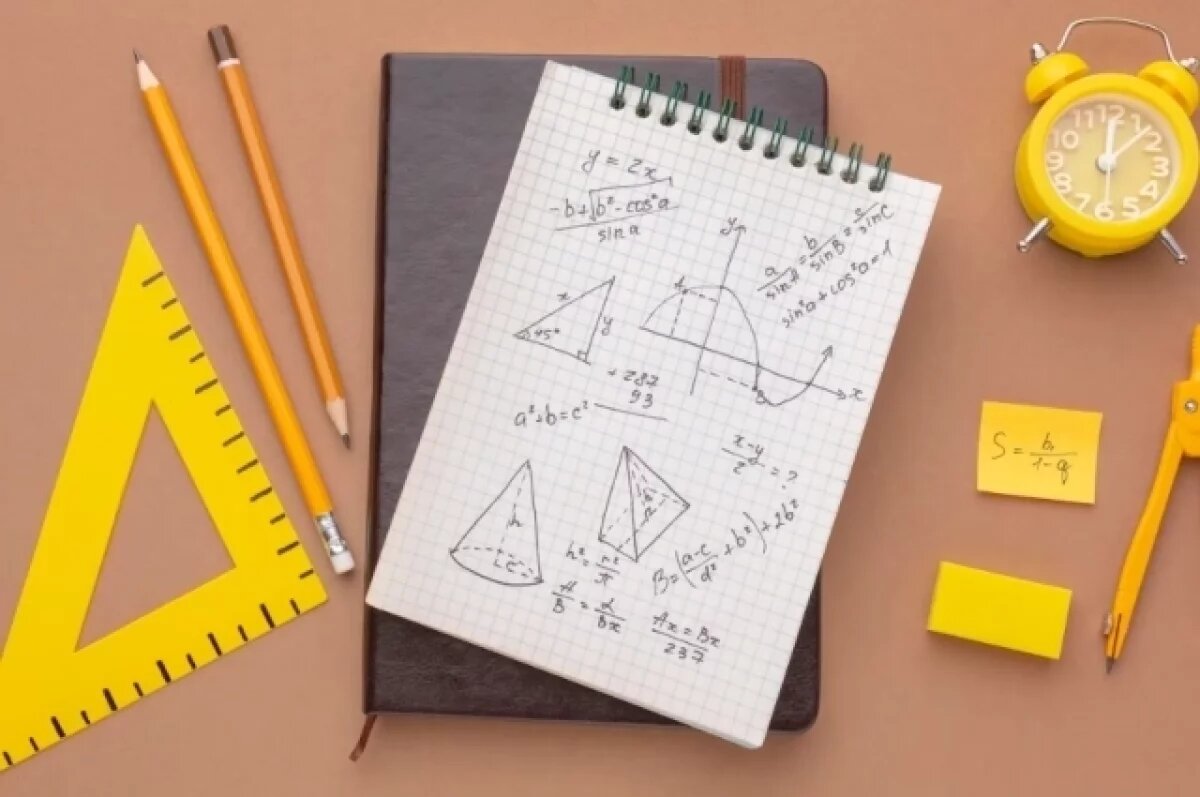 y = 2x
-b+√b²-cos²a
sin a
a/sinA = b/sinB = c/sinC
sin²a + cos²a = 1
y
A
x
y
45°
B
x
+ 287
93
a² + b = c²
x-y/2 = ?
h
r
h² = r²/π
B = (a-c/d² + b²) + 2b²
A/B = 2/Bx
Ax = Bx
237
S = b₁/1-q
12
1
2
3
4
5
6
7
8
9
10